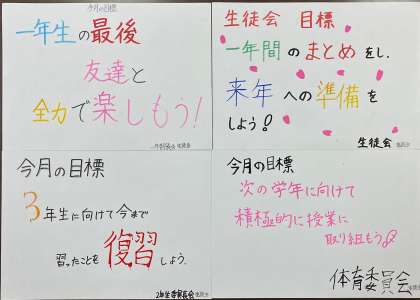 今月の目標
一年生の最後
友達と
全力で楽しもう!
生徒会 目標
一年間のまとめをし、
来年への準備を
しよう!
生徒会
今月の目標
3年生に向けて今まで
習ったことを復習しよう。
2年生学年委員会
今月の目標
次の学年に向けて
積極的に授業に
取り組もう
体育委員会